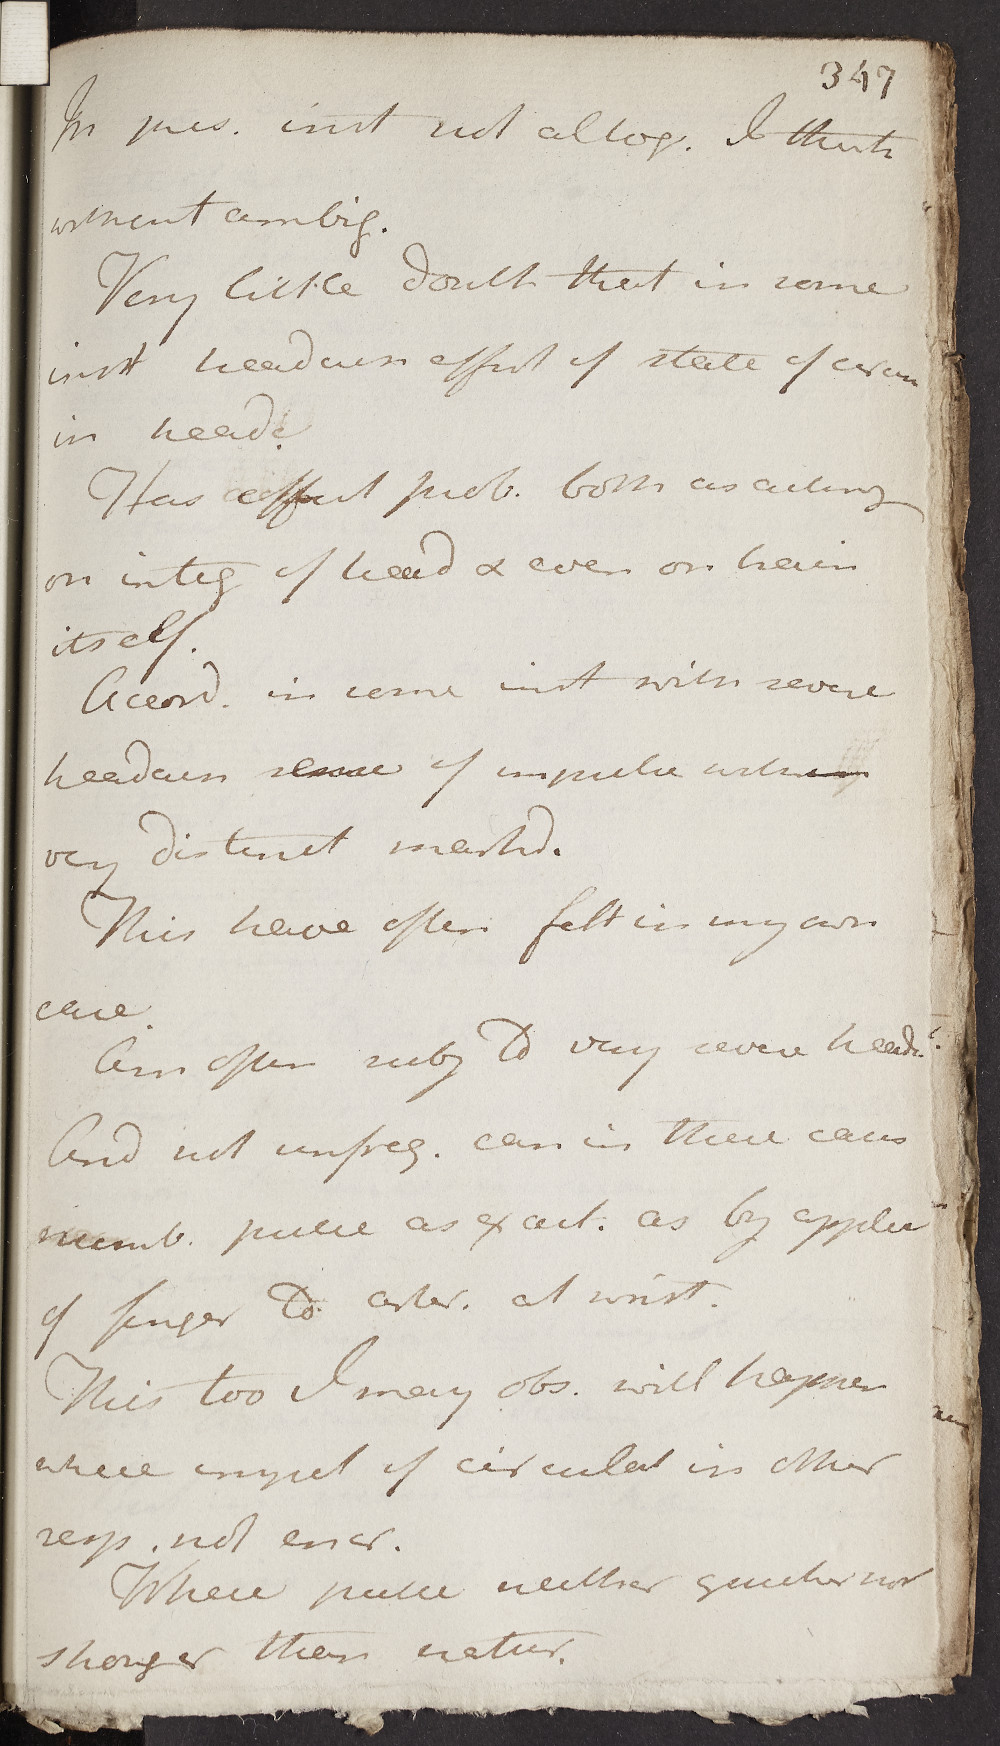 347
In pres. inst not altog. I think
without ambig.
Very little doubt that in some
inst headach effect of state of circn
in head.
Has effect prob. both as acting
on integ of head & even on brain
itself.
Accord. in some inst with severe
headach sense of impulse
very distinct markd.
This have often felt in my own
case.
Am often subj to very severe headc.
And not unfreq. can in these cases
numb. pulse as exact. as by applic
of finger to arter. at wrist.
This too I may obs. will happen
where impet of circulat in other
resp. not encr.
Where pulse neither quicker nor
stronger than natur.